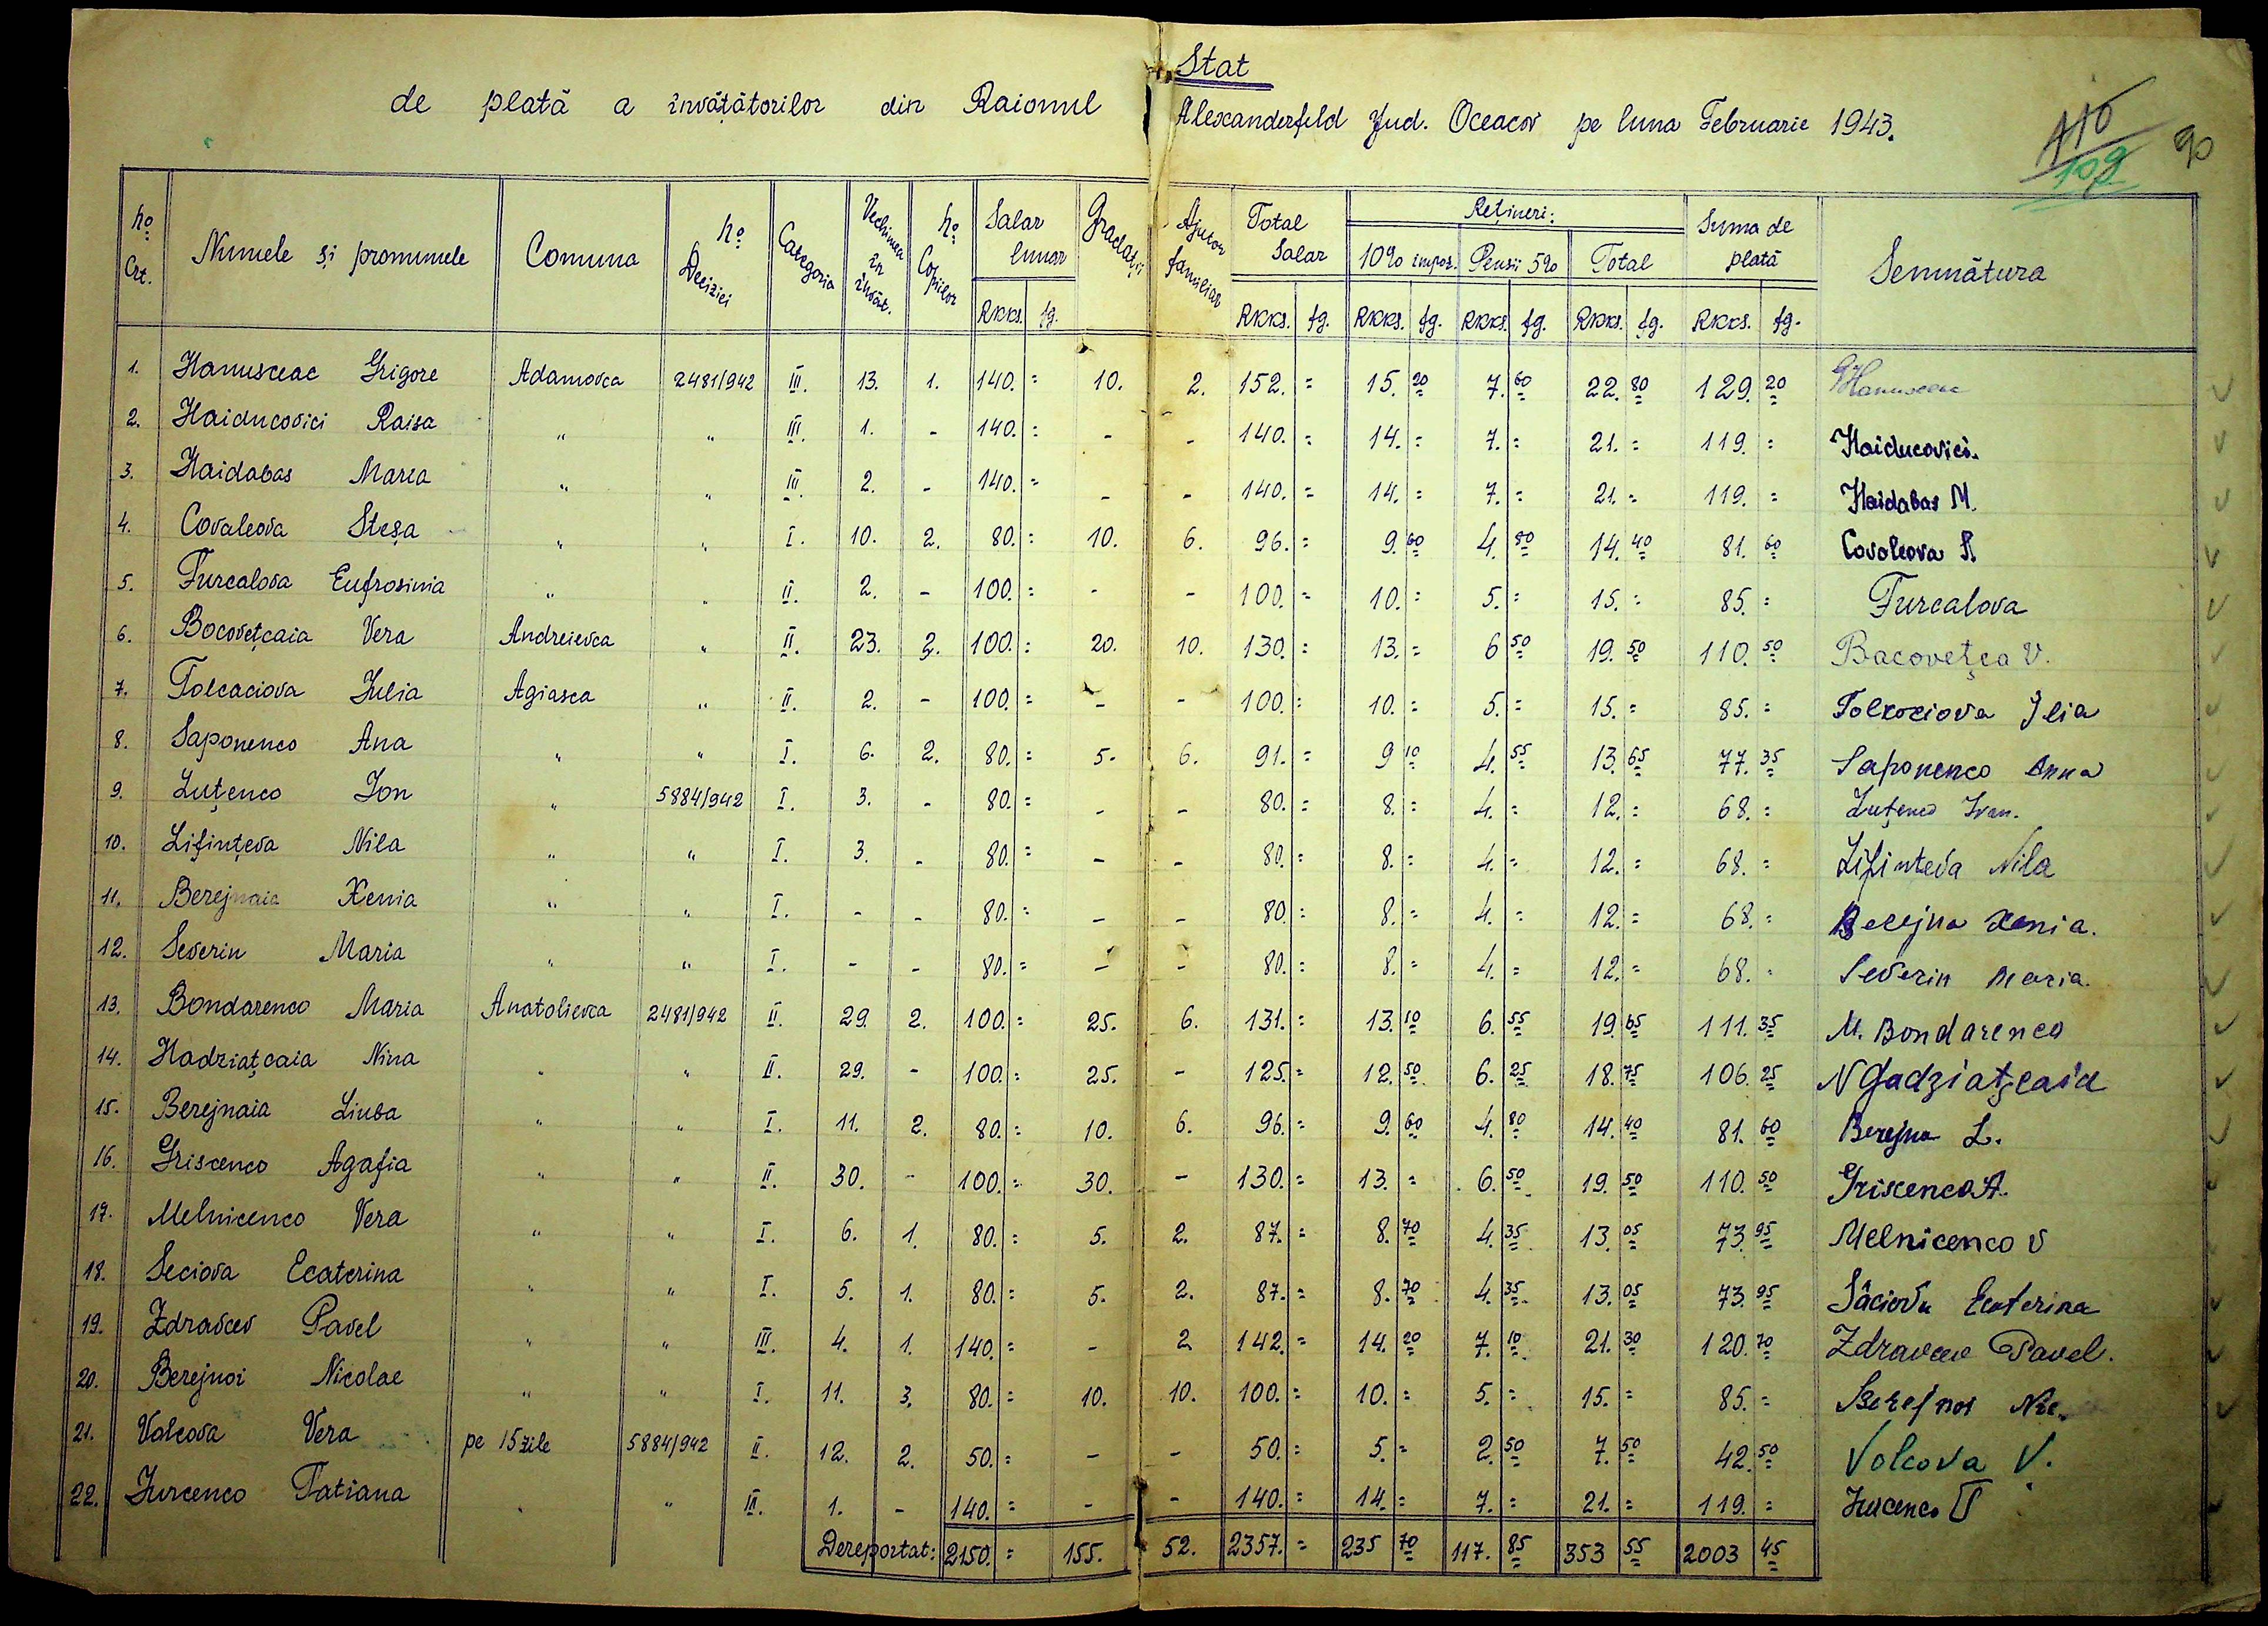 Stat
de plată a învățătorilor din Raionul Alexanderfeld Jud. Oceacov pe luna Februarie 1943.
110
109
90
No Crt. Numele și pronumele Comuna No Deciziei Categoria Vechimea în învăt. No Copiilor Salar lunar Gradații Ajutor familiar Total Salar Rețineri: Suma de plată Semnătura
10% impoz. Pensii 5% Total
RKKS. fg. RKKS. fg. RKKS. fg. RKKS. fg. RKKS. fg. RKKS. fg.
1. Hanusceac Grigore Adamovca 2481/942 III. 13. 1. 140. = 10. 2. 152. = 15. 20 7. 60 22. 80 129. 20 GHanusceac
2. Haiducovici Raisa " " III. 1. - 140. = - - 140. = 14. = 7. = 21. = 119. = Haiducovici.
3. Haidabas Maria " " III. 2. - 140. = - - 140. = 14. = 7. = 21. = 119. = Haidabas M.
4. Covaleova Steșa " " I. 10. 2. 80. = 10. 6. 96. = 9. 60 4. 80 14. 40 81. 60 Covaleova
5. Furcalova Eufrosinia " " II. 2. - 100. = - - 100. = 10. = 5. = 15. = 85. = Furcalova
6. Bocovețcaia Vera Andreievca " II. 23. 2. 100. = 20. 10. 130. = 13. = 6 50 19. 50 110. 50 Bacovețca V.
7. Tolcaciova Julia Agiasca " II. 2. - 100. = - - 100. = 10. = 5. = 15. = 85. = Tolkociova Ilia
8. Saponenco Ana " " I. 6. 2. 80. = 5. 6. 91. = 9 10 4. 55 13. 65 77. 35 Saponenco Anna
9. Luțenco Ion " 5884/942 I. 3. - 80. = - - 80. = 8. = 4. = 12. = 68. = Luțenco Ivan.
10. Lifințeva Nila " " I. 3. - 80. = - - 80. = 8. = 4. = 12. = 68. = Lifinteva Nila
11. Berejnaia Xenia " " I. - - 80. = - - 80. = 8. = 4. = 12. = 68. = Berejna Xenia.
12. Severin Maria " " I. - - 80. = - - 80. = 8. = 4. = 12. = 68. = Severin Maria.
13. Bondarenco Maria Anatolievca 2481/942 II. 29. 2. 100. = 25. 6. 131. = 13. 10 6. 55 19. 65 111. 35 M. Bondarenco
14. Hadziațcaia Nina " " II. 29. - 100. = 25. - 125. = 12. 50 6. 25 18. 75 106. 25 N Gadziațcaia
15. Berejnaia Liuba " " I. 11. 2. 80. = 10. 6. 96. = 9. 60 4. 80 14. 40 81. 60 Berejna L.
16. Griscenco Agafia " " II. 30. - 100. = 30. - 130. = 13. = 6. 50 19. 50 110. 50 Griscenco A.
17. Melnicenco Vera " " I. 6. 1. 80. = 5. 2. 87. = 8. 70 4. 35 13. 05 73. 95 Melnicenco V
18. Seciova Ecaterina " " I. 5. 1. 80. = 5. 2. 87. = 8. 70 4. 35 13. 05 73. 95 Sâciova Ecaterina
19. Zdravcev Pavel " " III. 4. 1. 140. = - 2 142. = 14. 20 7. 10 21. 30 120. 70 Zdravcev Pavel.
20. Berejnoi Nicolae " " I. 11. 3. 80. = 10. 10. 100. = 10. = 5. = 15. = 85. = Berejnoi Nic.
21. Volcova Vera pe 15 zile 5884/942 II. 12. 2. 50. = - - 50. = 5. = 2. 50 7. 50 42. 50 Volcova V.
22. Jurcenco Tatiana " " III. 1. - 140. = - - 140. = 14. = 7. = 21. = 119. = Jurcenco T
Dereportat: 2150. = 155. 52. 2357. = 235 70 117. 85 353 55 2003 45